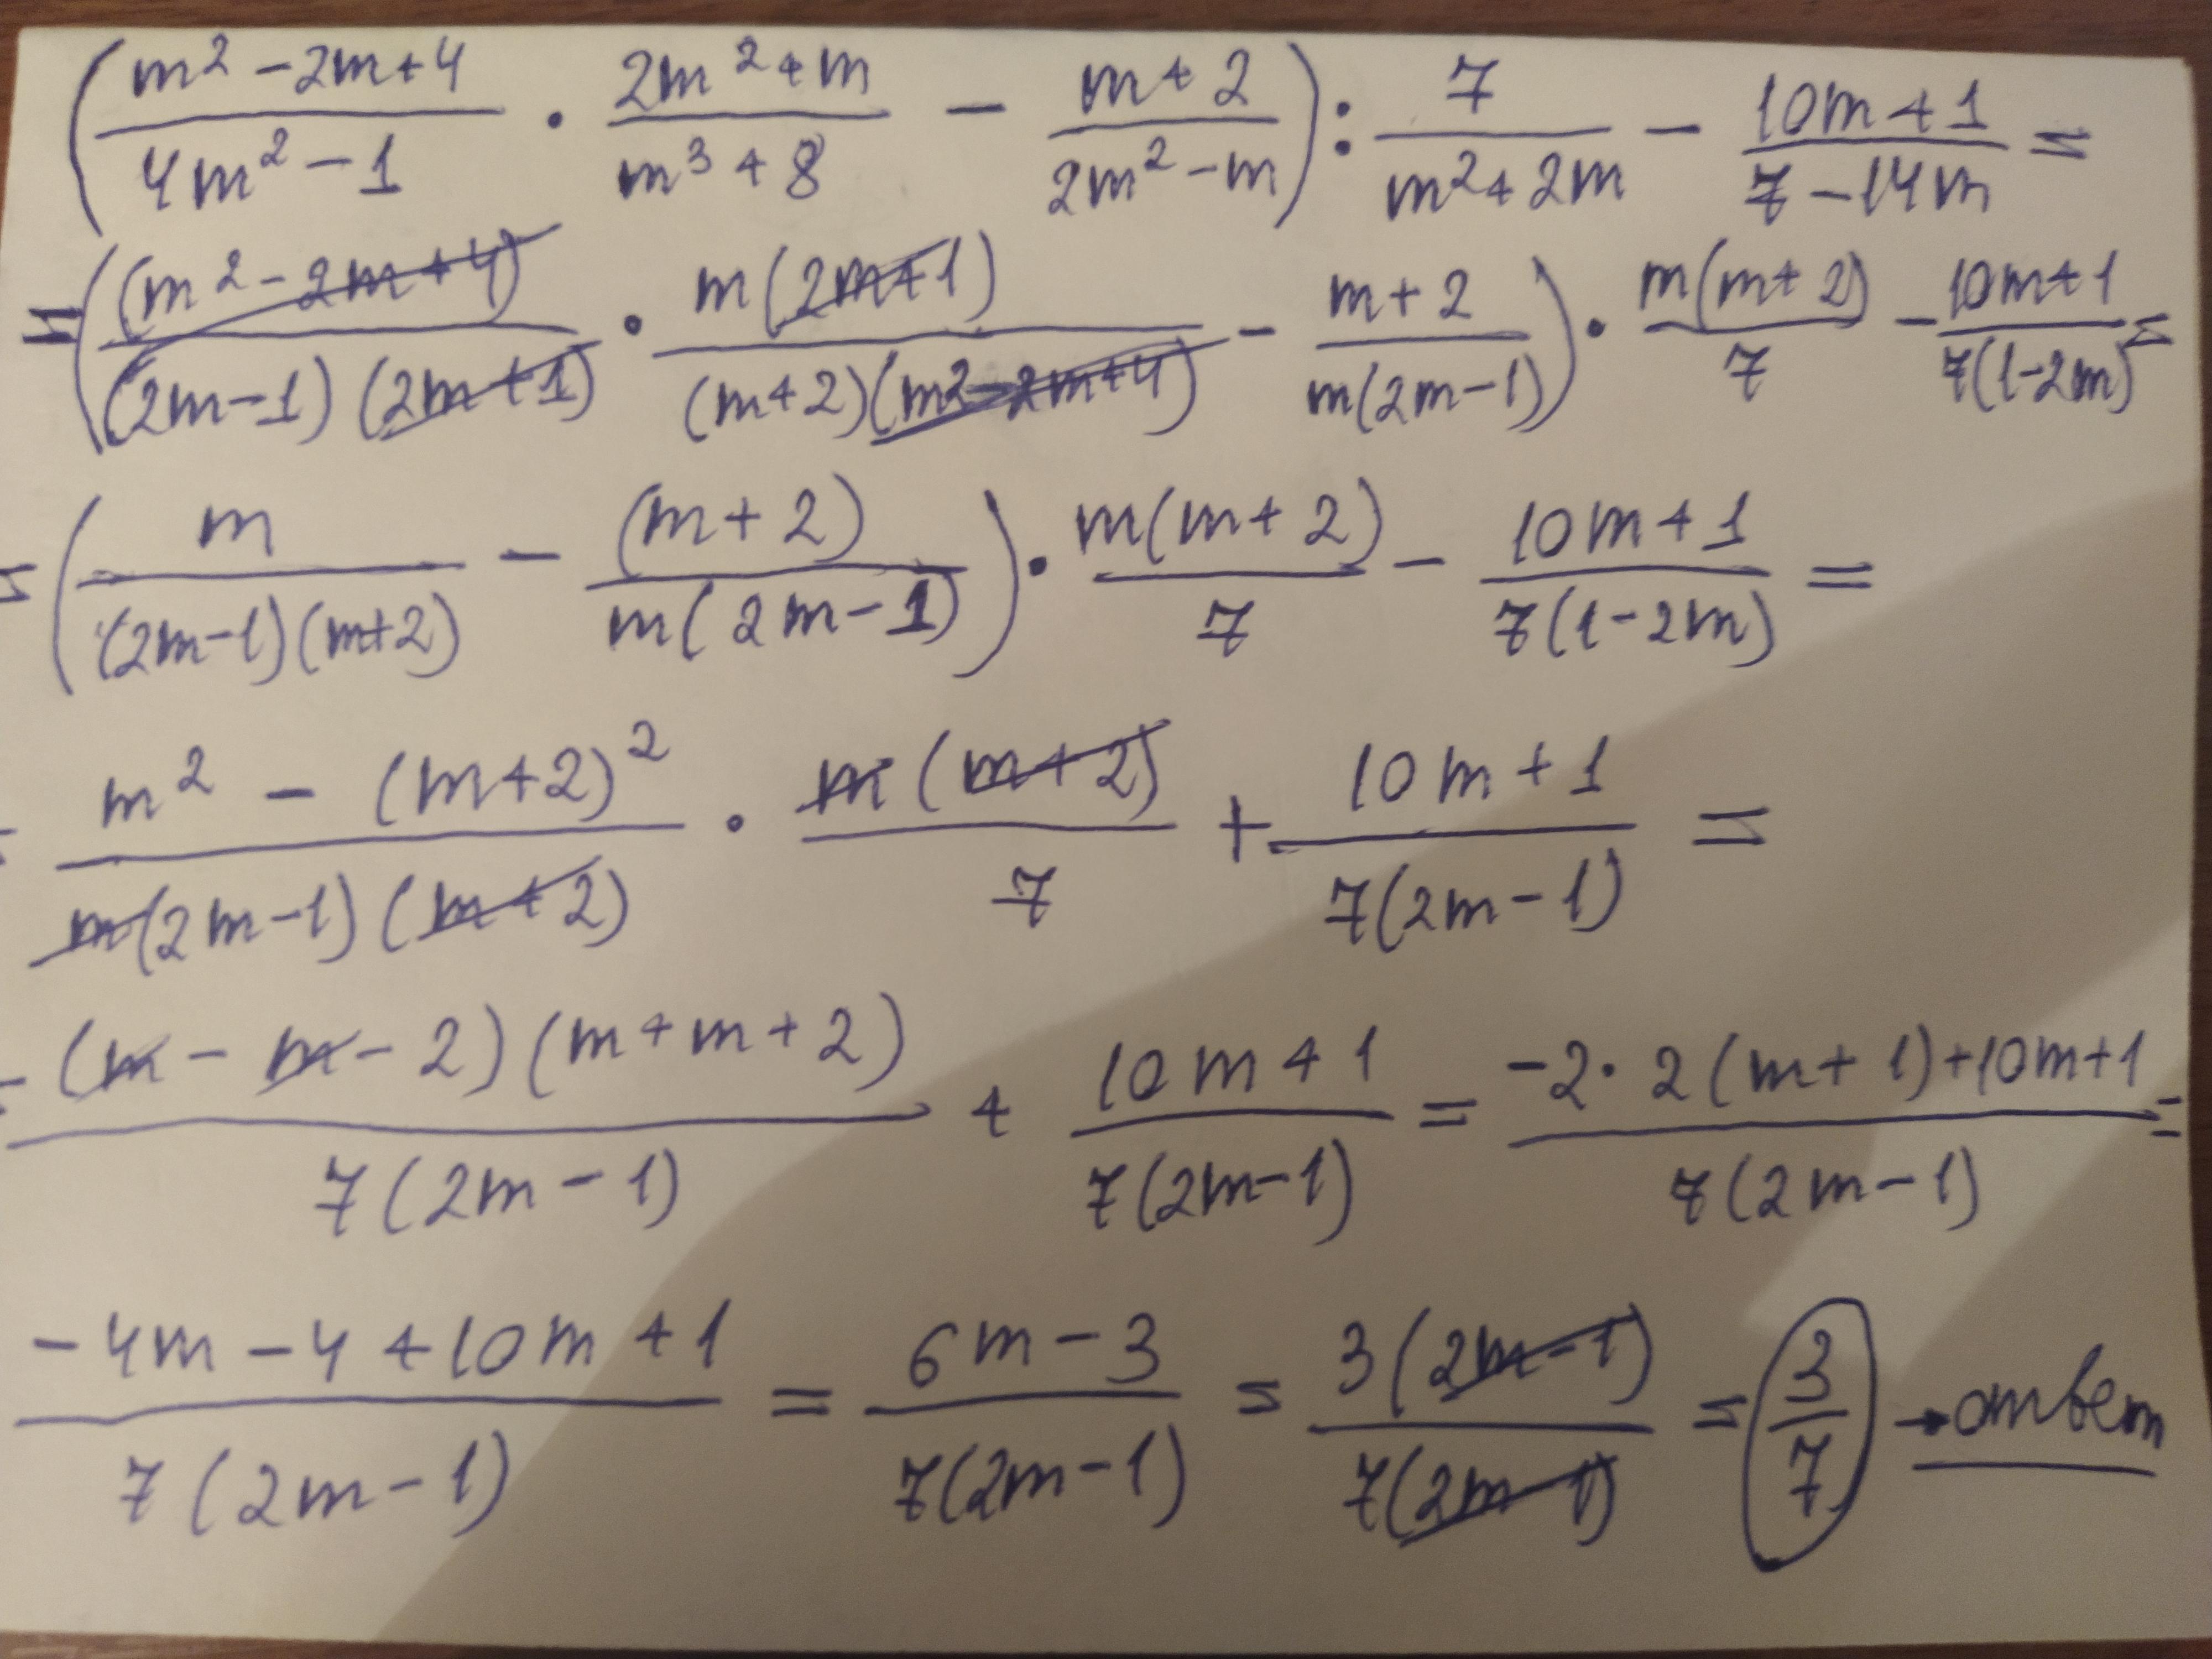 (m² - 2m + 4)/(4m² - 1) · (2m² + m)/(m³ + 8) - (m + 2)/(2m² - m)) : 7/(m² + 2m) - (10m + 1)/(7 - 14m) =
= ((m² - 2m + 4)/((2m - 1)(2m + 1)) · m(2m + 1)/((m + 2)(m² - 2m + 4)) - (m + 2)/(m(2m - 1))) · m(m + 2)/7 - (10m + 1)/(7(1 - 2m)) =
= (m/((2m - 1)(m + 2)) - (m + 2)/(m(2m - 1))) · m(m + 2)/7 - (10m + 1)/(7(1 - 2m)) =
= (m² - (m + 2)²)/(m(2m - 1)(m + 2)) · m(m + 2)/7 + (10m + 1)/(7(2m - 1)) =
= (m - m - 2)(m + m + 2)/(7(2m - 1)) + (10m + 1)/(7(2m - 1)) = (-2 · 2(m + 1) + 10m + 1)/(7(2m - 1)) =
(-4m - 4 + 10m + 1)/(7(2m - 1)) = (6m - 3)/(7(2m - 1)) = 3(2m - 1)/(7(2m - 1)) = 3/7 → ответ